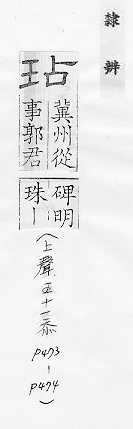 隸辨
玷
冀州從
事郭君
碑明
珠丨
(上聲五十一忝
P473
-
P474)